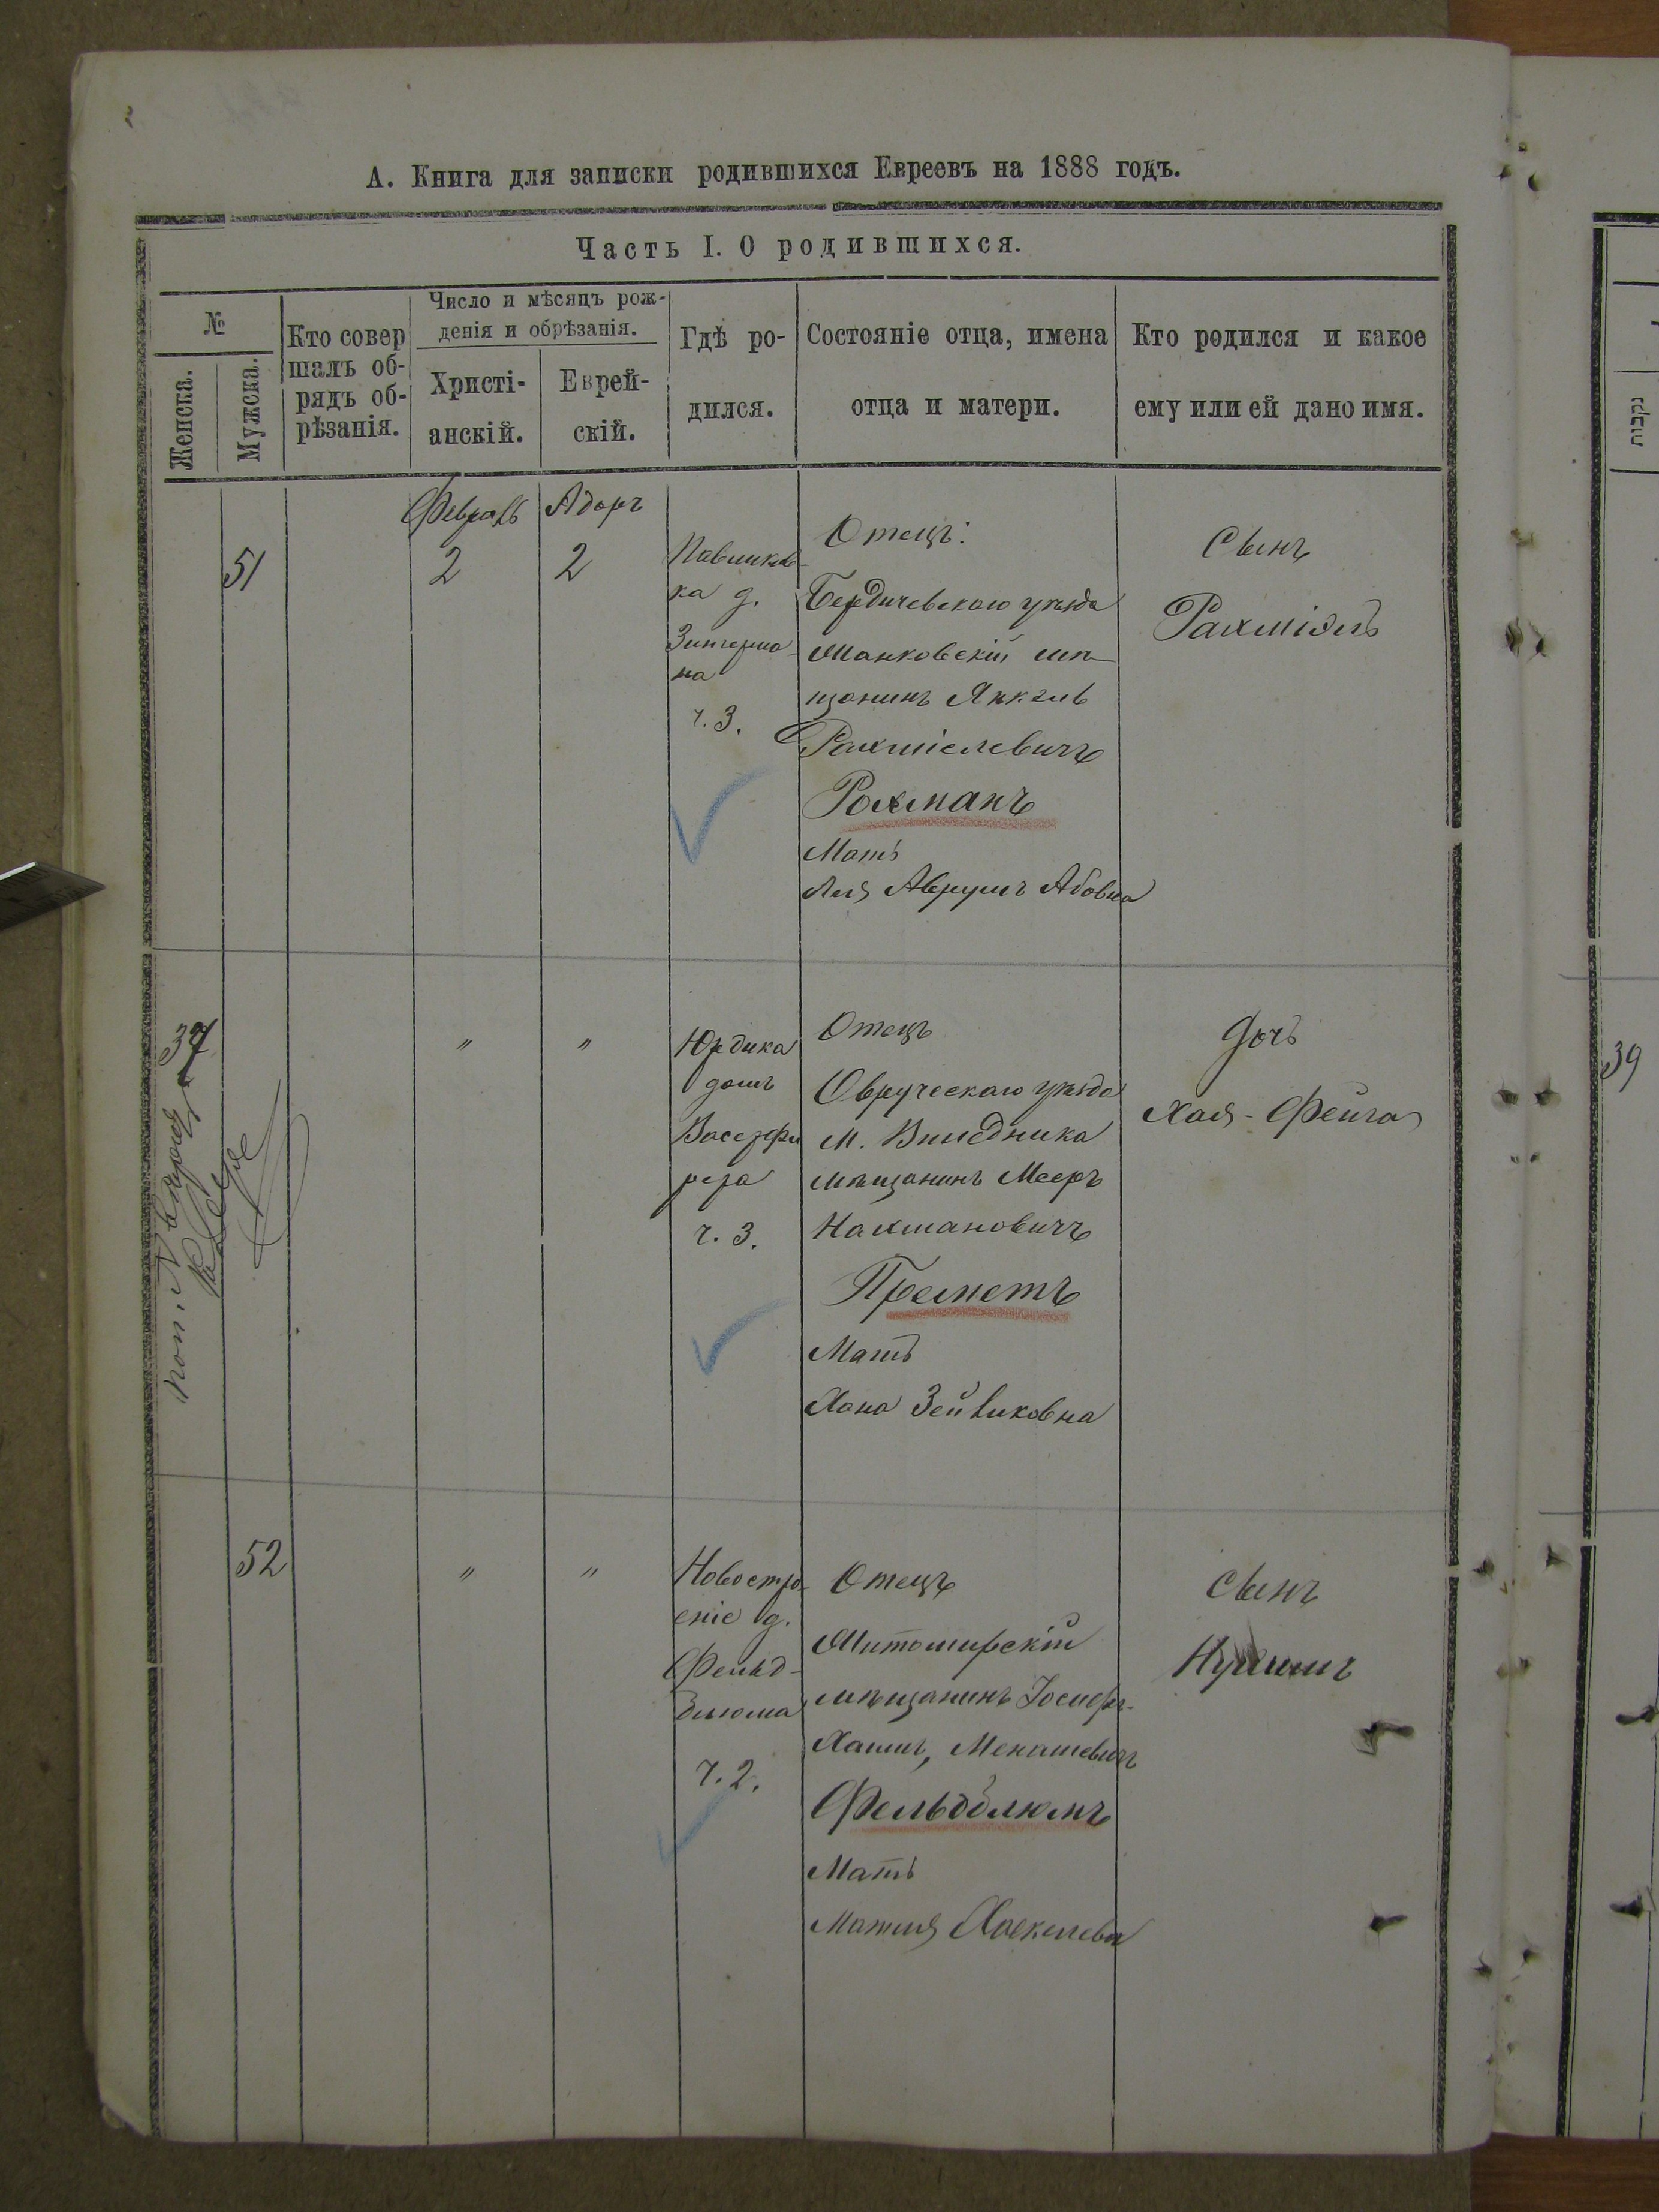 А. Книга для записки родившихся Евреевъ на 1888 годъ.
Часть I. О родившихся.
№
Женска.
Мужска.
Кто совер
шалъ об-
рядъ об-
рѣзанія.
Число и мѣсяцъ рож-
денія и обрѣзанія.
Христі-
анскій.
Еврей-
скій.
Гдѣ ро-
дился.
Состояніе отца, имена
отца и матери.
Кто родился и какое
ему или ей дано имя.
51
Февраль
2
Адаръ
2
Павликов-
ка д.
Зингерма-
на
ч. 3.
Отецъ:
Бердичевскаго уѣзда
Янковскій мѣ-
щанинъ Янкель
Рахміелевичъ
Рохманъ
Мать
Лея Аврумъ Абовна
Сынъ
Рахміэль
37
"
"
Юрдика
домъ
ч. 3.
Отецъ
Овручскаго уѣзда
м. Виледника
мѣщанинъ Мееръ
Нахмановичъ
Преметъ
Мать
Хана Зейликовна
Дочь
Хая-Фейга
52
"
"
Новостро-
еніе д.
Фельд-
блюма
ч. 2.
Отецъ
Житомирскій
мѣщанинъ Іосифъ-
Хаимъ, Менашевичъ
Фельдблюмъ
Мать
Сынъ
נקבות
39